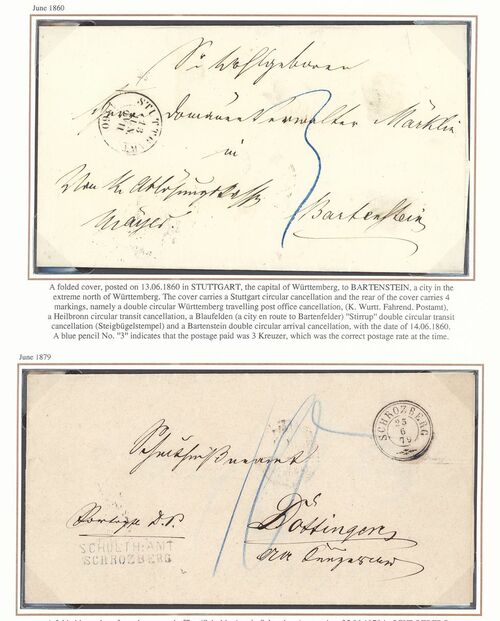 June 1860
Sr. Wohlgeboren
Herrn Domänenverwalter Märklin
in
Von K. Ablösungskasse
Mayer.
Bartenstein
STUTTGART
13 JUN
1860
3
A folded cover, posted on 13.06.1860 in STUTTGART, the capital of Württemberg, to BARTENSTEIN, a city in the
extreme north of Württemberg. The cover carries a Stuttgart circular cancellation and the rear of the cover carries 4
markings, namely a double circular Württemberg travelling post office cancellation, (K. Wurtt. Fahrend. Postamt),
a Heilbronn circular transit cancellation, a Blaufelden (a city en route to Bartenfelder) "Stirrup" double circular transit
cancellation (Steigbügelstempel) and a Bartenstein double circular arrival cancellation, with the date of 14.06.1860.
A blue pencil No. "3" indicates that the postage paid was 3 Kreuzer, which was the correct postage rate at the time.
June 1879
SCHROZBERG
25
6
79
Schultheißenamt
Portopfl. D.S.
Döttingen
SCHULTH:AMT
SCHROZBERG